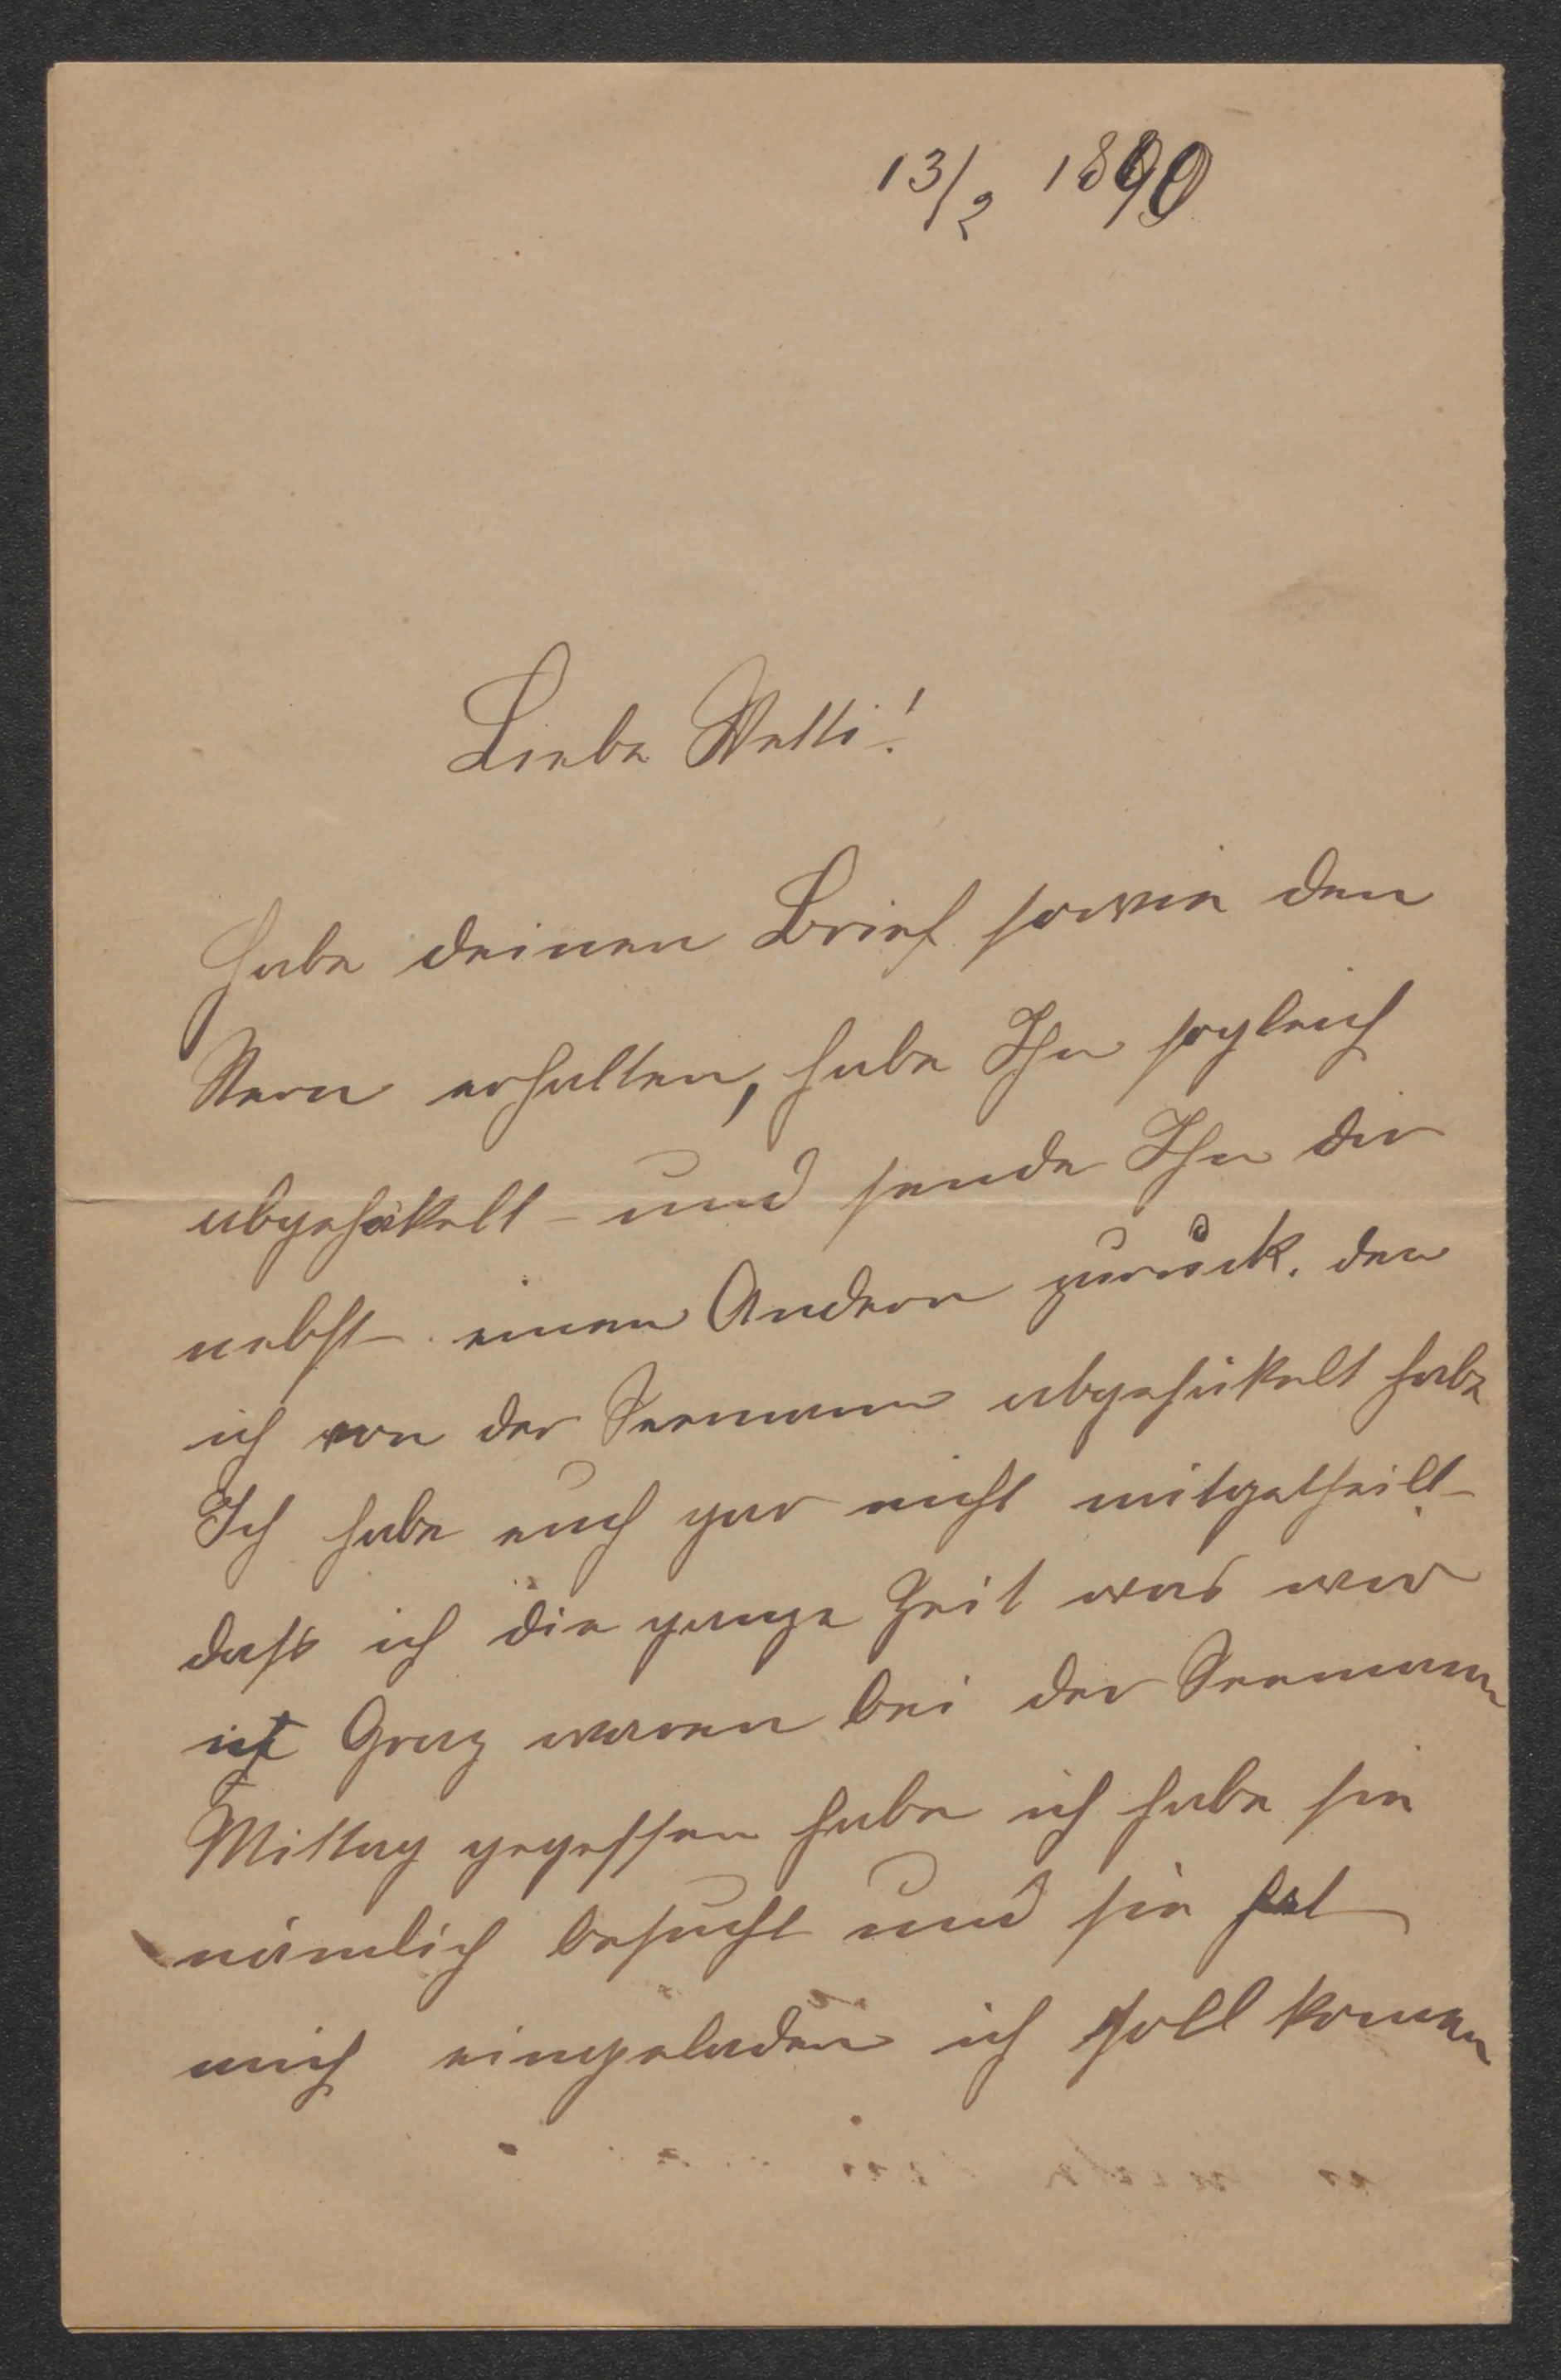 13/2 1890
Liebe Netti!
habe deinen Brief sowie den
Stern erhalten, habe Ihn sogleich
abgehäkelt und sende Ihn dir
nebst einen Andern zurück. den
ich von der Seemann abgehäkelt habe
Ich habe euch gar nicht mitgetheilt
dass ich die ganze Zeit was wir
in Graz waren bei der Seemann
Mittag gegessen habe ich habe sie
nämlich besucht und sie hat
mich eingeladen ich soll komen